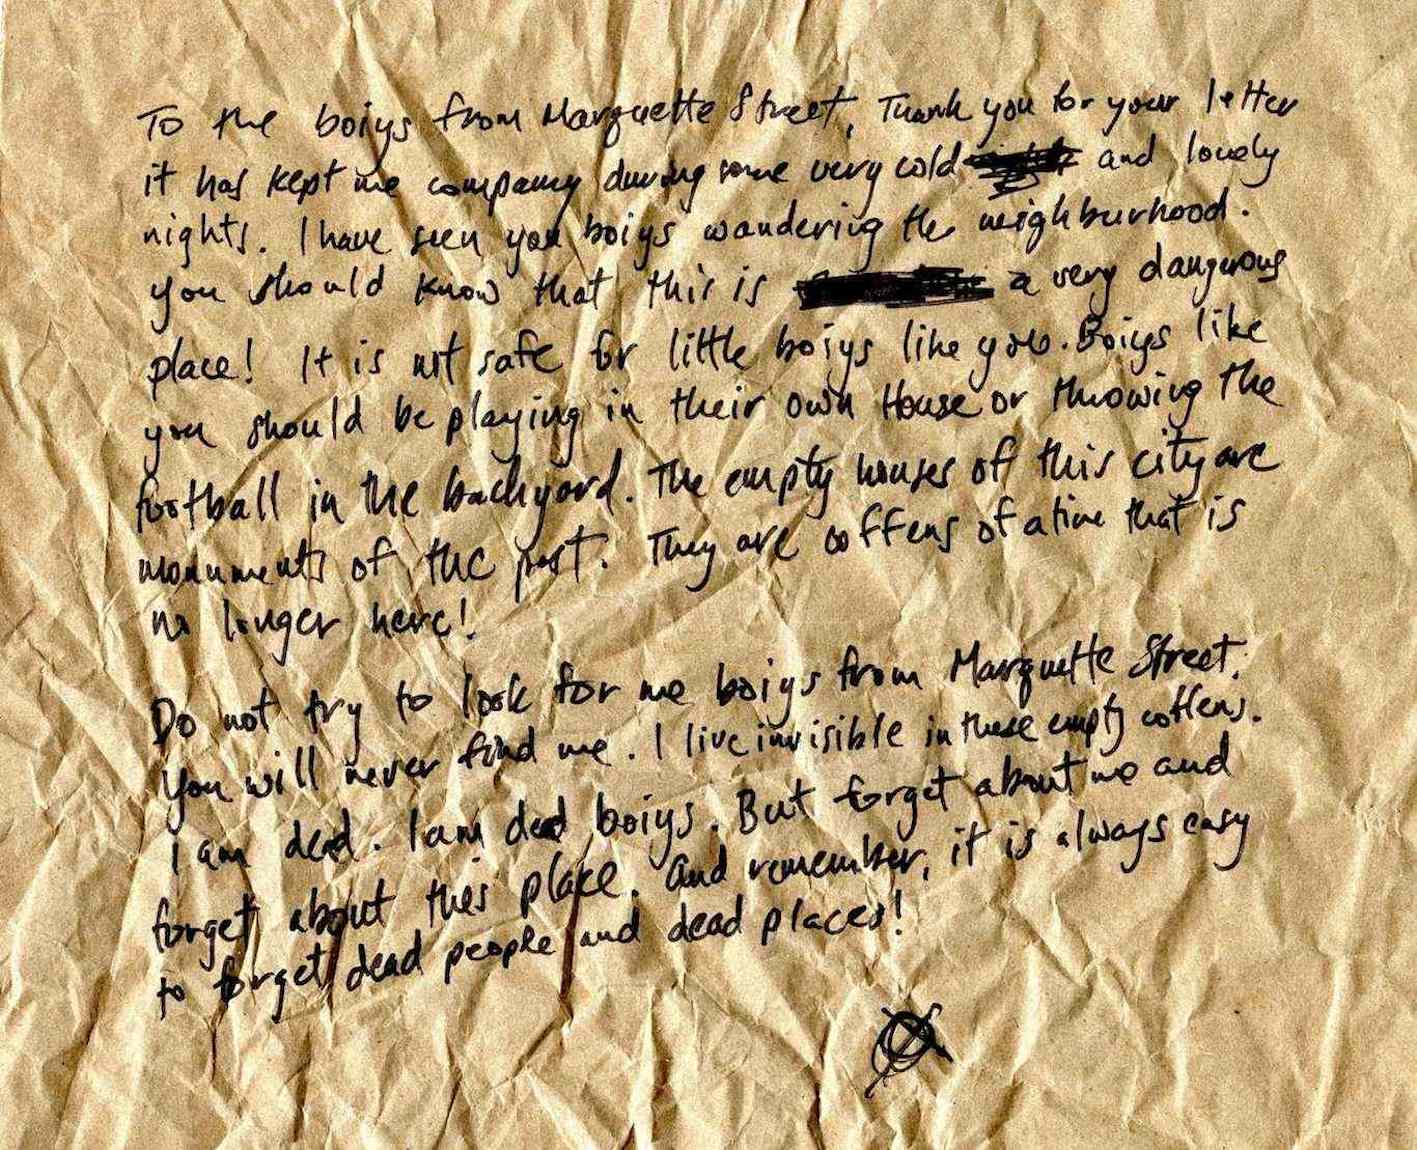 To the boiys from Marquette Street, Thank you for your letter
it has kept me company during some very cold and lonely
nights. I have seen you boiys wandering the neighburhood.
you should know that this is a very dangerous
place! It is not safe for little boiys like you. Boiys like
you should be playing in their own House or throwing the
football in the backyard. The empty houses of this city are
monuments of the past. They are coffens of a time that is
no longer here!
Do not try to look for me boiys from Marquette Street.
You will never find me. I live invisible in these empty coffens.
I am dead. I am dead boiys. But forget about me and
forget about this place. And remember, it is always easy
to forget dead people and dead places!